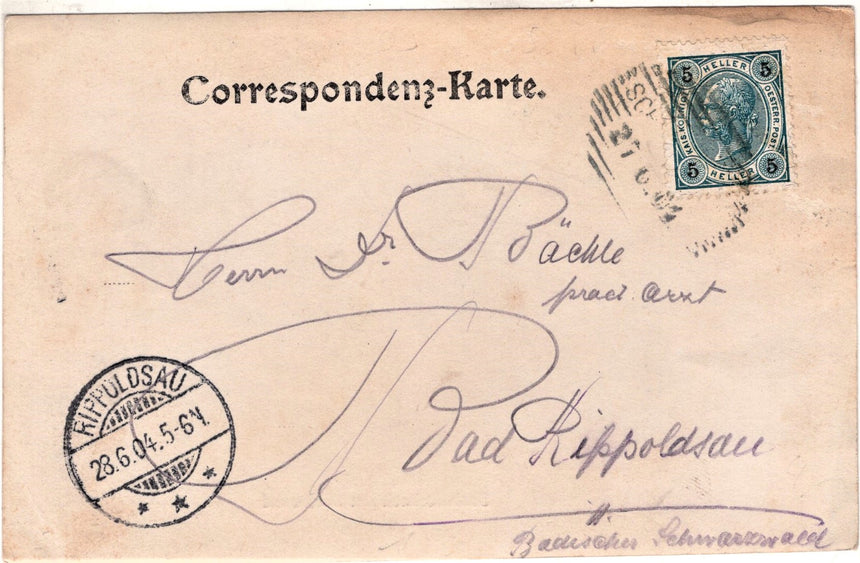 Correspondenz-Karte.
5 HELLER 5
KAIS. KOENIGL. OESTERR. POST.
5 HELLER 5
27 6.04
Herrn Dr Bächle
pract. Arzt
RIPPOLDSAU
28.6.04.5-6N.
Bad Rippoldsau
Badischer Schwarzwald